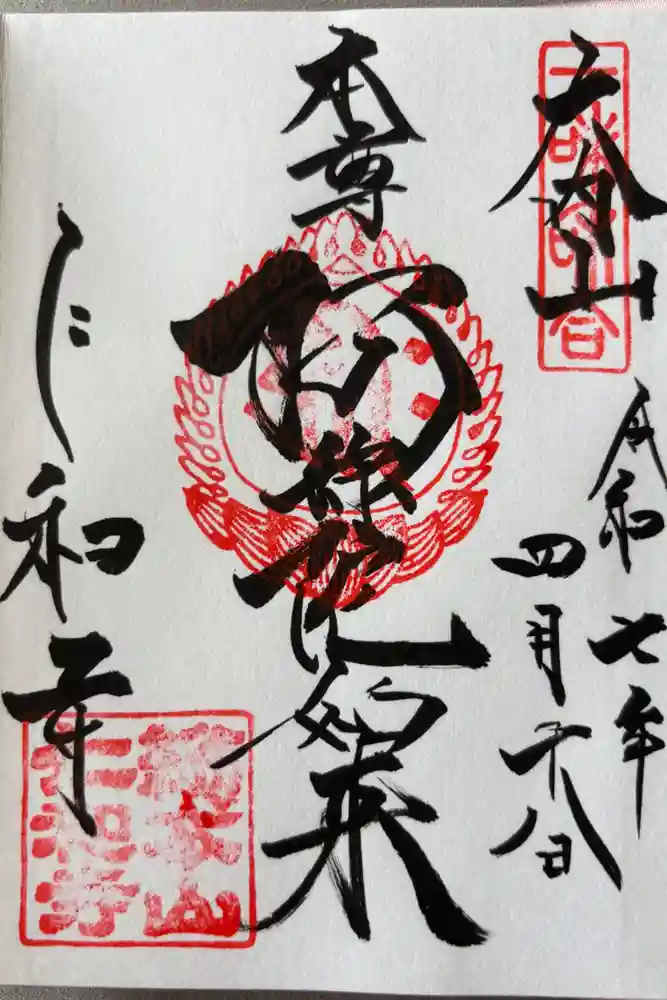 大内山
令和七年
四月十八日
本尊
阿弥陀如来
仁和寺
総本山
仁和寺